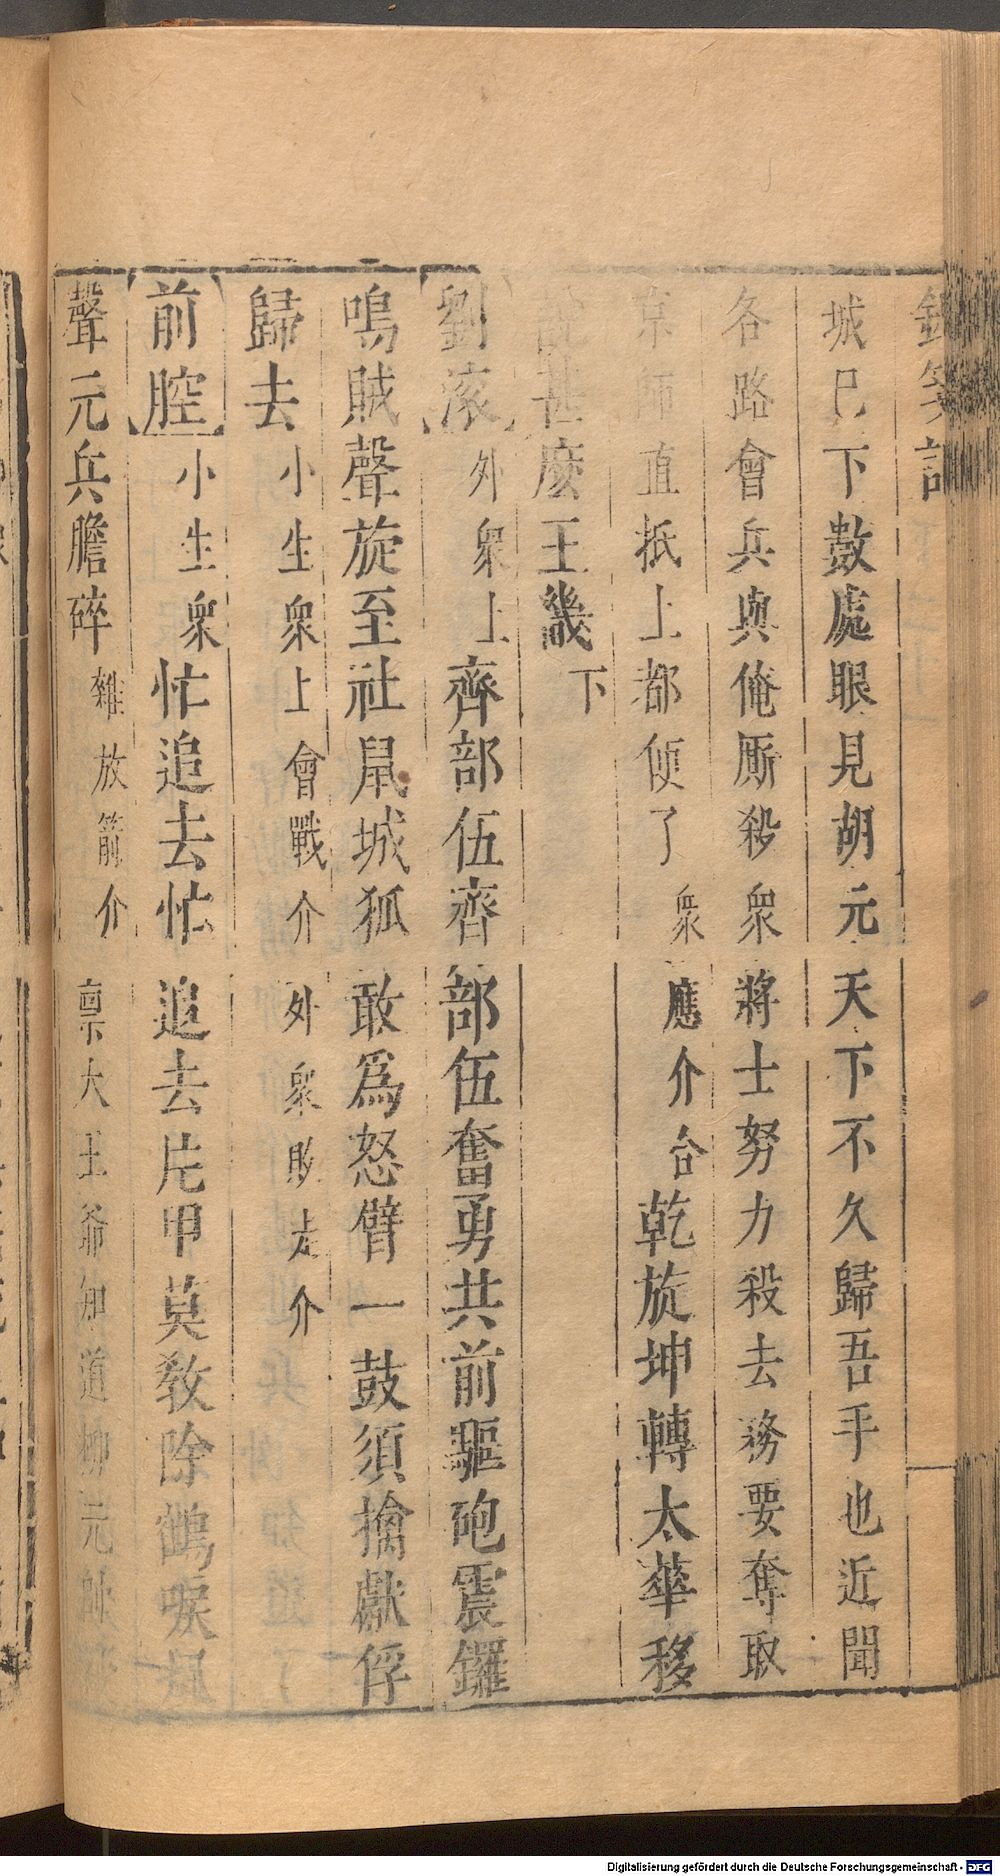 城已下數處眼見胡元天下不久歸吾手也近聞
各路會兵與俺厮殺衆將士努力殺去務要奪取
京師直抵上都便了衆應介合乾旋坤轉太華移
說甚麽王畿下
劉滚外衆上齊部伍齊部伍奮勇共前驅砲震鑼
鳴賊聲旋至社鼠城狐敢爲怒臂一鼓須擒獻俘
歸去小生衆上會戰介外衆敗走介
前腔小生衆忙追去忙追去片甲莫敎除鶴唳風
聲元兵膽碎雜放箭介禀大王爺知道柳元帥
Digitalisierung gefördert durch die Deutsche Forschungsgemeinschaft - DFG